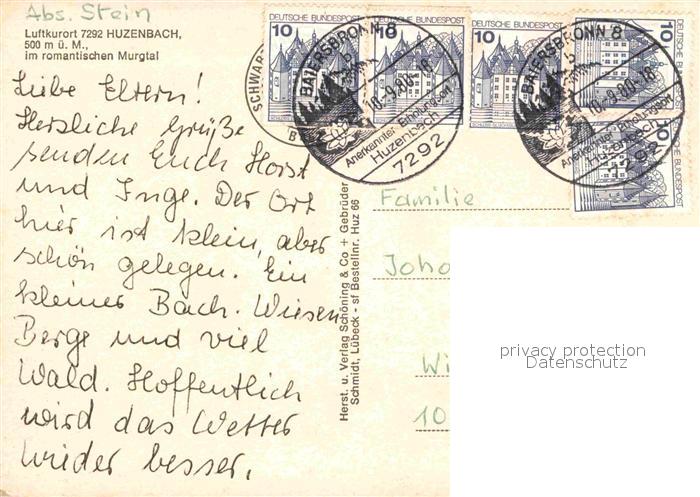 Abs. Stein
Luftkurort 7292 HUZENBACH,
500 m ü. M.,
im romantischen Murgtal
Liebe Eltern!
Herzliche Grüße
senden Euch Horst
und Inge. Der Ort
hier ist klein, aber
schön gelegen. Ein
kleiner Bach. Wiesen
Berge und viel
Wald. Hoffentlich
wird das Wetter
wieder besser.
Herst. u. Verlag Schöning & Co + Gebrüder
Schmidt, Lübeck - sf Bestellnr. Huz 66
DEUTSCHE BUNDESPOST
10
DEUTSCHE BUNDESPOST
10
DEUTSCHE BUNDESPOST
10
DEUTSCHE BUNDESPOST
10
DEUTSCHE BUNDESPOST
10
SCHWARZ
BAIERSBRONN
b
10.-9.80.-18
Anerkannter Erholungsort
Huzenbach
7292
BAIERSBRONN 8
b
10.-9.80.-18
Anerkannter Erholungsort
Huzenbach
7292
Familie
Joha
Wi
10
privacy protection
Datenschutz